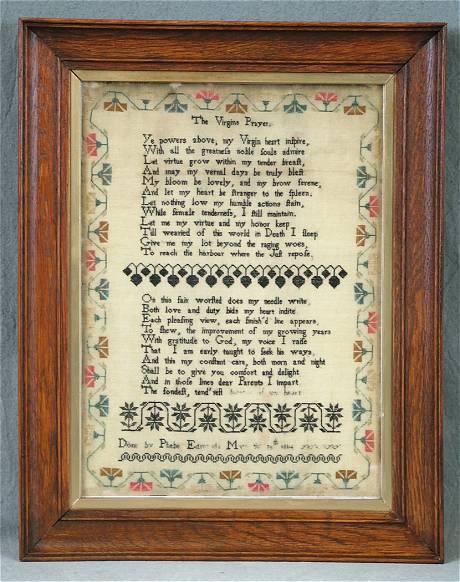 The Virgins Prayer.
Ye powers above, my Virgin heart inspire,
With all the greatness noble souls admire
Let virtue grow within my tender breast,
And may my vernal days be truly blest
My bloom be lovely, and my brow serene,
And let my heart be stranger to the spleen;
Let nothing low my humble actions stain,
While female tenderness, I still maintain.
Let me my virtue and my honor keep
Till wearied of this world in Death I sleep
Give me my lot beyond the raging woes,
To reach the harbour where the Just repose.
On this fair worsted does my needle write,
Both love and duty bids my heart indite
Each pleasing view, each finish'd line appears,
To shew, the improvement of my growing years
With gratitude to God, my voice I raise
That I am early taught to seek his ways,
And this my constant care, both morn and night
Shall be to give you comfort and delight
And in those lines dear Parents I impart
The fondest, tend'rest
Done by Phebe